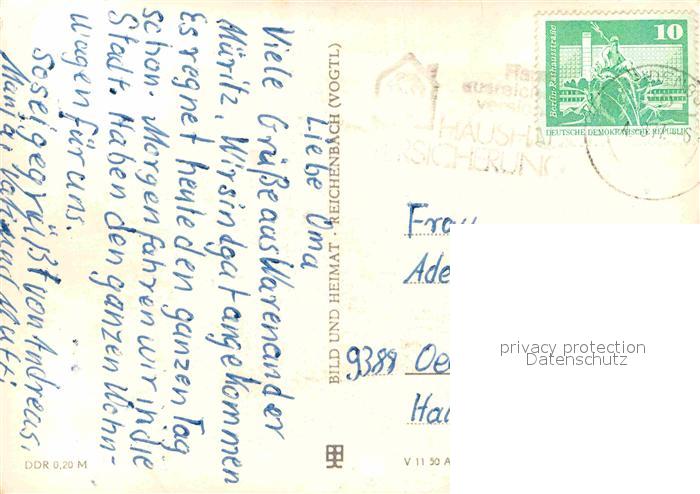 Liebe Oma
Viele Grüße aus Waren an der
Müritz. Wir sind gut angekommen
Es regnet heute den ganzen Tag
schon. Morgen fahren wir in die
Stadt. Haben den ganzen
wagen für uns.
So sei gegrüßt von Andreas,
und Mutti
BILD UND HEIMAT · REICHENBACH (VOGTL)
DDR 0,20 M
V 11 50 A
10
Berlin-Rathausstraße
DEUTSCHE DEMOKRATISCHE REPUBLIK
HAUSH
RSICHERUNG
Frau
Ade
9389 Oe
Hau
privacy protection
Datenschutz